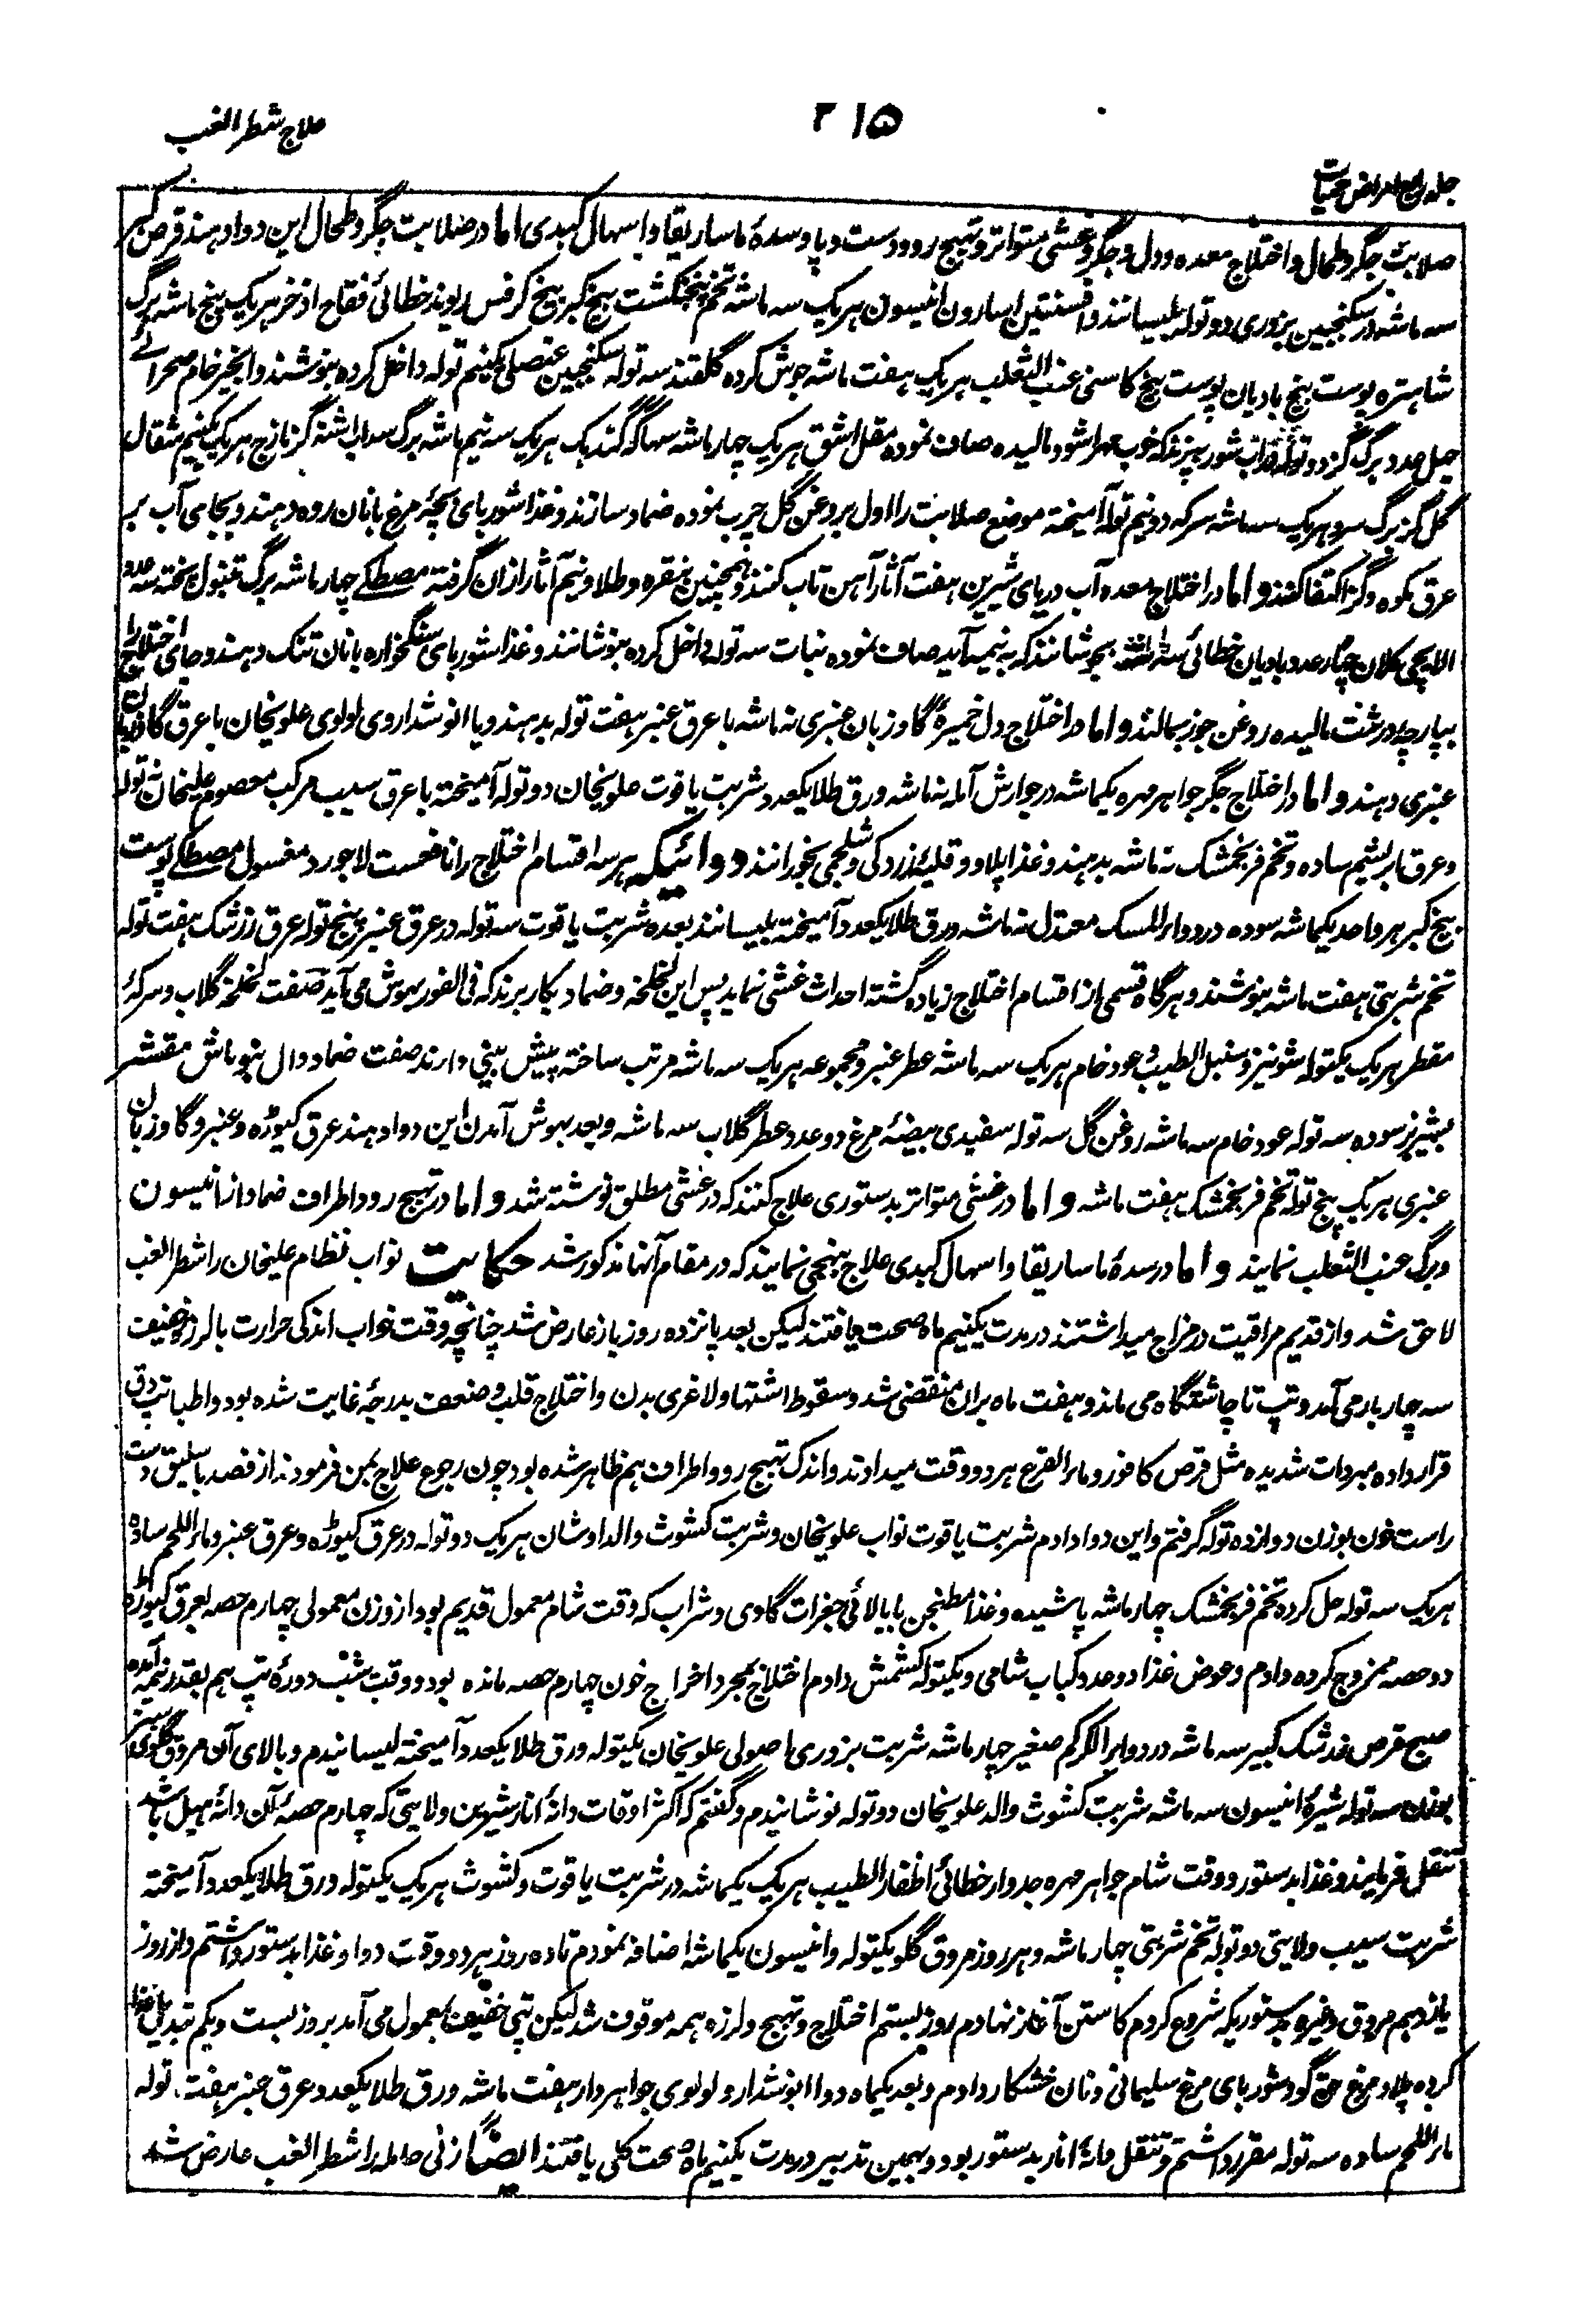 علاج شطر الغب
۳۱۵
جلد رابع امراض حمیات
صلابت جگر و طحال و اختلاج معده و دل و جگر و غشی متواتر و تهبج رو و دست و پا و سدهٔ ماساریقا و اسهال کبدی اما در صلابت جگر و طحال این دوا دهند قرص کبر
سه ماشه در سکنجبین بزوری دو توله بلیسانند و افسنتین اسارون انیسون هر یک سه ماشه تخم پنجنگشت بیخ کبر بیخ کرفس ریوند خطائی فقاح اذخر هر یک پنج ماشه برگ
شاهتره پوست بیخ بادیان پوست بیخ کاسنی عنب الثعلب هر یک هفت ماشه جوش کرده گلقند سه توله سکنجبین عنصلی یکنیم توله داخل کرده بنوشند و انجیر خام صحرائے
چهل عدد برگ گز دو توله در آب شور بپزند که خوب مهرا شود مالیده صاف نموده مقل اشق هر یک چهار ماشه سهاگه گندهک هر یک سه نیم ماشه برگ سداب اشنه گزمازج هر یک یکنیم مثقال
گل گز برگ سرو هر یک سه ماشه سرکه دو نیم توله آمیخته موضع صلابت را اول بروغن گل چرب نموده ضماد سازند و غذا شوربای بچهٔ مرغ با نان روه دهند و بجای آب بر
عرق مکوه و گز اکتفا کنند و اما در اختلاج معده آب دریای شیرین هفت آثار آهن تاب کنند و همچنین بنقره و طلا و نیم آثار ازان گرفته مصطکے چهار ماشه برگ تنبول پخته سه عدد
الاچی کلان چهار عدد بادیان خطائی سه ماشه بجوشانند که به نیمه آید صاف نموده نبات سه توله داخل کرده بنوشانند و غذا شوربای سنگخواره با نان تنک دهند و جای اختلاج را
بپارچه درشت مالیده روغن جوز بمالند و اما در اختلاج دل خمیرهٔ گاو زبان عنبری نه ماشه با عرق عنبر هفت توله بدهند و یا انوشداروی لولوی علویخان با عرق گاوزبان
عنبری دهند و اما در اختلاج جگر جواهر مهره یکماشه در جوارش آمله نه ماشه ورق طلا یکعدد شربت یاقوت علویخان دو توله آمیخته با عرق سیب مرکب معصوم علیخان نه توله
و عرق ابریشم ساده و تخم فرنجمشک نه ماشه بدهند و غذا پلاو و قلیهٔ زردکی و شلجمی بخورانند دوائیکه هر سه اقسام اختلاج را نافعست لاجورد مغسول مصطکے پوست
بیخ کبر هر واحد یکماشه سوده در دواء المسک معتدل نه ماشه ورق طلا یکعدد آمیخته بلیسانند بعده شربت یاقوت سه توله در عرق عنبر پنج توله عرق زرشک هفت توله
تخم شربتی هفت ماشه بنوشند و هرگاه قسمی از اقسام اختلاج زیاده گشته احداث غشی نماید پس این لخلخه و ضماد بکار برند که فی الفور بهوش می آید صفت لخلخه گلاب و سرکهٔ
مقطر هر یک یکتوله شونیز و سنبل الطیب و عود خام هر یک سه ماشه عطر عنبر و مجموعه هر یک سه ماشه مرتب ساخته پیش بینی دارند صفت ضماد دال بنو ماش مقشر
بشیر بز سوده سه توله عود خام سه ماشه روغن گل سه توله سفیدی بیضهٔ مرغ دو عدد عطر گلاب سه ماشه و بعد بهوش آمدن این دوا دهند عرق کیوڑه و عنبر و گاو زبان
عنبری هر یک پنج توله تخم فرنجمشک هفت ماشه و اما در غشی متواتر بدستوری علاج کنند که در غشی مطلق نوشته شد و اما در تهبج رو و اطراف ضماد از انیسون
و برگ عنب الثعلب نمایند و اما در سدهٔ ماساریقا و اسهال کبدی علاج بنهجی نمایند که در مقام آنها مذکور شد حکایت نواب نظام علیخان را شطر الغب
لاحق شد و از قدیم مراقیت در مزاج میداشتند در مدت یکنیم ماه صحت یافتند لیکن بعد پانزده روز باز عارض شد چنانچه وقت خواب اندکی حرارت با لرزه خفیف
سه چهار بار می آمد و تپ تا چاشتگاه می ماند و هفت ماه بران منقضی شد و سقوط اشتها و لاغری بدن و اختلاج قلب و ضعف بدرجهٔ غایت شده بود و اطبا تپ دق
قرار داده مبردات شدیده مثل قرص کافور و ماء القرع هر دو وقت میدادند و اندک تهبج رو و اطراف هم ظاهر شده بود چون رجوع علاج بمن فرمودند از فصد باسلیق دست
راست خون بوزن دوازده توله گرفتم و این دوا دادم شربت یاقوت نواب علویخان و شربت کشوث والد اوشان هر یک دو توله در عرق کیوڑه و عرق عنبر و ماء اللحم ساده
هر یک سه توله حل کرده تخم فرنجمشک چهار ماشه پاشیده و غذا مطنجن با بالائی جغرات گاوی و شراب که وقت شام معمول قدیم بود از وزن معمولی چهارم حصه بعرق کیوڑه
دو حصه ممزوج کرده دادم و عوض غذا دو عدد کباب شامی و یکتوله کشمش دادم اختلاج بمجرد اخراج خون چهارم حصه مانده بود و وقت شب دورهٔ تپ هم بقدر نیمه آمده
صبح قرص زرشک کبیر سه ماشه در دواء الکرکم صغیر چهار ماشه شربت بزوری اصولی علویخان یکتوله ورق طلا یکعدد آمیخته لیسانیدم و بالای آن مروق گلوی سبز
بوزن سه توله شیرهٔ انیسون سه ماشه شربت کشوث والد علویخان دو توله نوشانیدم و گفتم که اکثر اوقات دانهٔ انار شیرین ولایتی که چهارم حصهٔ آن دانهٔ هیل باشد
تنقل فرمایند و غذا بدستور و وقت شام جواهر مهره جدوار خطائی اظفار الطیب هر یک یکماشه در شربت یاقوت و کشوث هر یک یکتوله ورق طلا یکعدد آمیخته
شربت سیب ولایتی دو توله تخم شربتی چهار ماشه و هر روز مروق گلو یکتوله و انیسون یکماشه اضافه نمودم تا ده روز هر دو وقت دوا و غذا بدستور داشتم و از روز
یازدهم مروق وغیره بدستوریکه شروع کردم کاستن آغاز نهادم روز بستم اختلاج و تهبج و لرزه همه موقوف شد لیکن تپی خفیف بمعمول می آمد بروز بست و یکم تبدیل غذا
کرده پلاو مرغ و شوربای مرغ سلیمانی و نان خشکار دادم و بعد یکماه دوا انوشدارو لولوی جواهردار هفت ماشه ورق طلا یکعدد و عرق عنبر هفت توله
ماء اللحم ساده سه توله مقرر داشتم و تنقل دانهٔ انار بدستور بود و بهمین تدبیر در مدت یکنیم ماه صحت کلی یافتند ایضاً زنی حامله را شطر الغب عارض شد